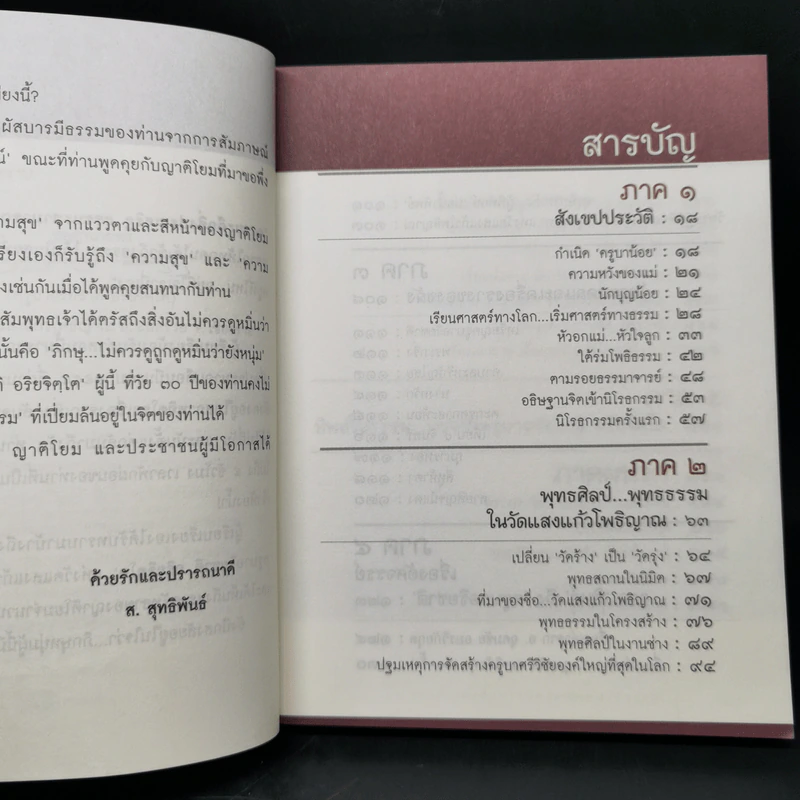 ยงนี้?
ผัสบารมีธรรมของท่านจากการสัมภาษณ์
ขณะที่ท่านพูดคุยกับญาติโยมที่มาขอพึ่ง
ามสุข' จากแววตาและสีหน้าของญาติโยม
รียงเองก็รับรู้ถึง 'ความสุข' และ 'ความ
งเช่นกันเมื่อได้พูดคุยสนทนากับท่าน
สัมพุทธเจ้าได้ตรัสถึงสิ่งอันไม่ควรดูหมิ่นว่า
นั้นคือ 'ภิกษุ...ไม่ควรดูถูกดูหมิ่นว่ายังหนุ่ม'
อริยจิตฺโต' ผู้นี้ ที่วัย ๓๐ ปีของท่านคงไม่
รม' ที่เปี่ยมล้นอยู่ในจิตของท่านได้
ญาติโยม และประชาชนผู้มีโอกาสได้
ด้วยรักและปรารถนาดี
ส. สุทธิพันธ์
สารบัญ
ภาค ๑
สังเขปประวัติ : ๑๘
กำเนิด 'ครูบาน้อย' : ๑๘
ความหวังของแม่ : ๒๑
นักบุญน้อย : ๒๔
เรียนศาสตร์ทางโลก...เริ่มศาสตร์ทางธรรม : ๒๘
หัวอกแม่...หัวใจลูก : ๓๓
ใต้ร่มโพธิธรรม : ๔๒
ตามรอยธรรมาจารย์ : ๔๘
อธิษฐานจิตเข้านิโรธกรรม : ๕๓
นิโรธกรรมครั้งแรก : ๕๗
ภาค ๒
พุทธศิลป์...พุทธธรรม
ในวัดแสงแก้วโพธิญาณ : ๖๓
เปลี่ยน 'วัดร้าง' เป็น 'วัดรุ่ง' : ๖๔
พุทธสถานในนิมิต : ๖๗
ที่มาของชื่อ...วัดแสงแก้วโพธิญาณ : ๗๑
พุทธธรรมในโครงสร้าง : ๗๖
พุทธศิลป์ในงานช่าง : ๘๙
ปฐมเหตุการจัดสร้างครูบาศรีวิชัยองค์ใหญ่ที่สุดในโลก : ๙๔